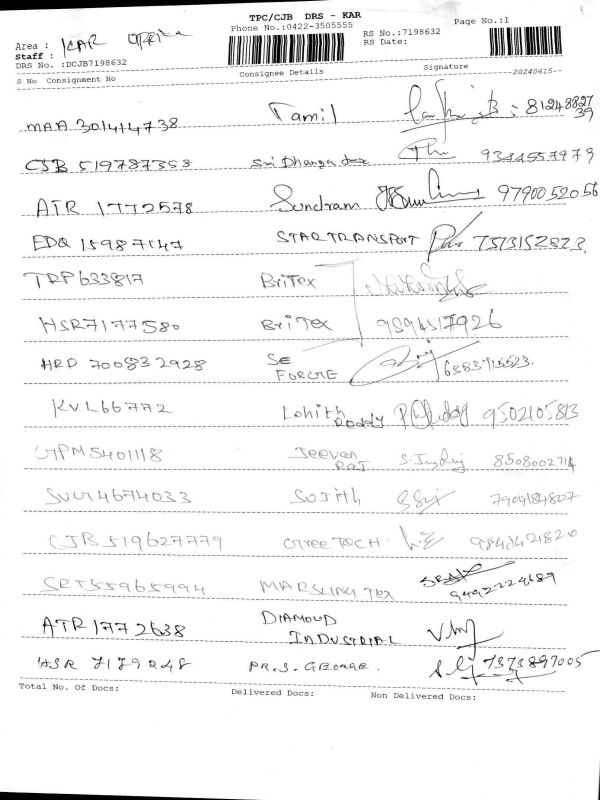 TPC/CJB DRS - KAR
Phone No.:0422-3505555
RS No.:7198632
Page No.:1
RS Date:
Area : KAR OFFICE
Staff :
DRS No. :DCJB7198632
S No Consignment No Consignee Details Signature
--20240615--
MAA 301414738 Tamil 8124882739
CJB 519787353 Sri Dhanga tex 9344557979
ATR 1772578 Sundram 9790052056
EDQ 15987147 STAR TRANSPORT 7373152823
TRP 633817 BriTex
HSR7177580 BriTex 9594517926
HRD 700832928 SE FORCTE 6383715523.
KVL66772 Lohith Reddy 9502105813
GPM5401118 Jeevan Raj 8508002714
4674033 Sujith 7904184807
CJB519627779 Gree TECH 9842421820
SRT55965994 MARSLING TEX 9492224689
ATR1772638 DIAMOUD INDUSTRIAL
HSR 7179248 PR.S. GEORGE. 7373897005
Total No. Of Docs: Delivered Docs: Non Delivered Docs: